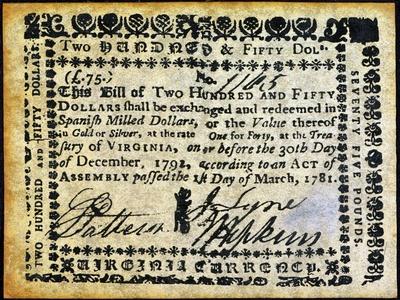 Two HUNDRED & FIFTY DOLs.
(£.75.) No. 1195
This Bill of Two HUNDRED AND FIFTY
DOLLARS shall be exchanged and redeemed in
Spanish Milled Dollars, or the Value thereof
in Gold or Silver, at the rate One for Forty, at the Trea-
sury of VIRGINIA, on or before the 30th Day
of December, 1792, according to an ACT of
ASSEMBLY passed the 1st Day of March, 1781.
Patteson J. Lyne
Hopkins
VIRGINIA CURRENCY.
TWO HUNDRED AND FIFTY DOLLARS.
SEVENTY FIVE POUNDS.